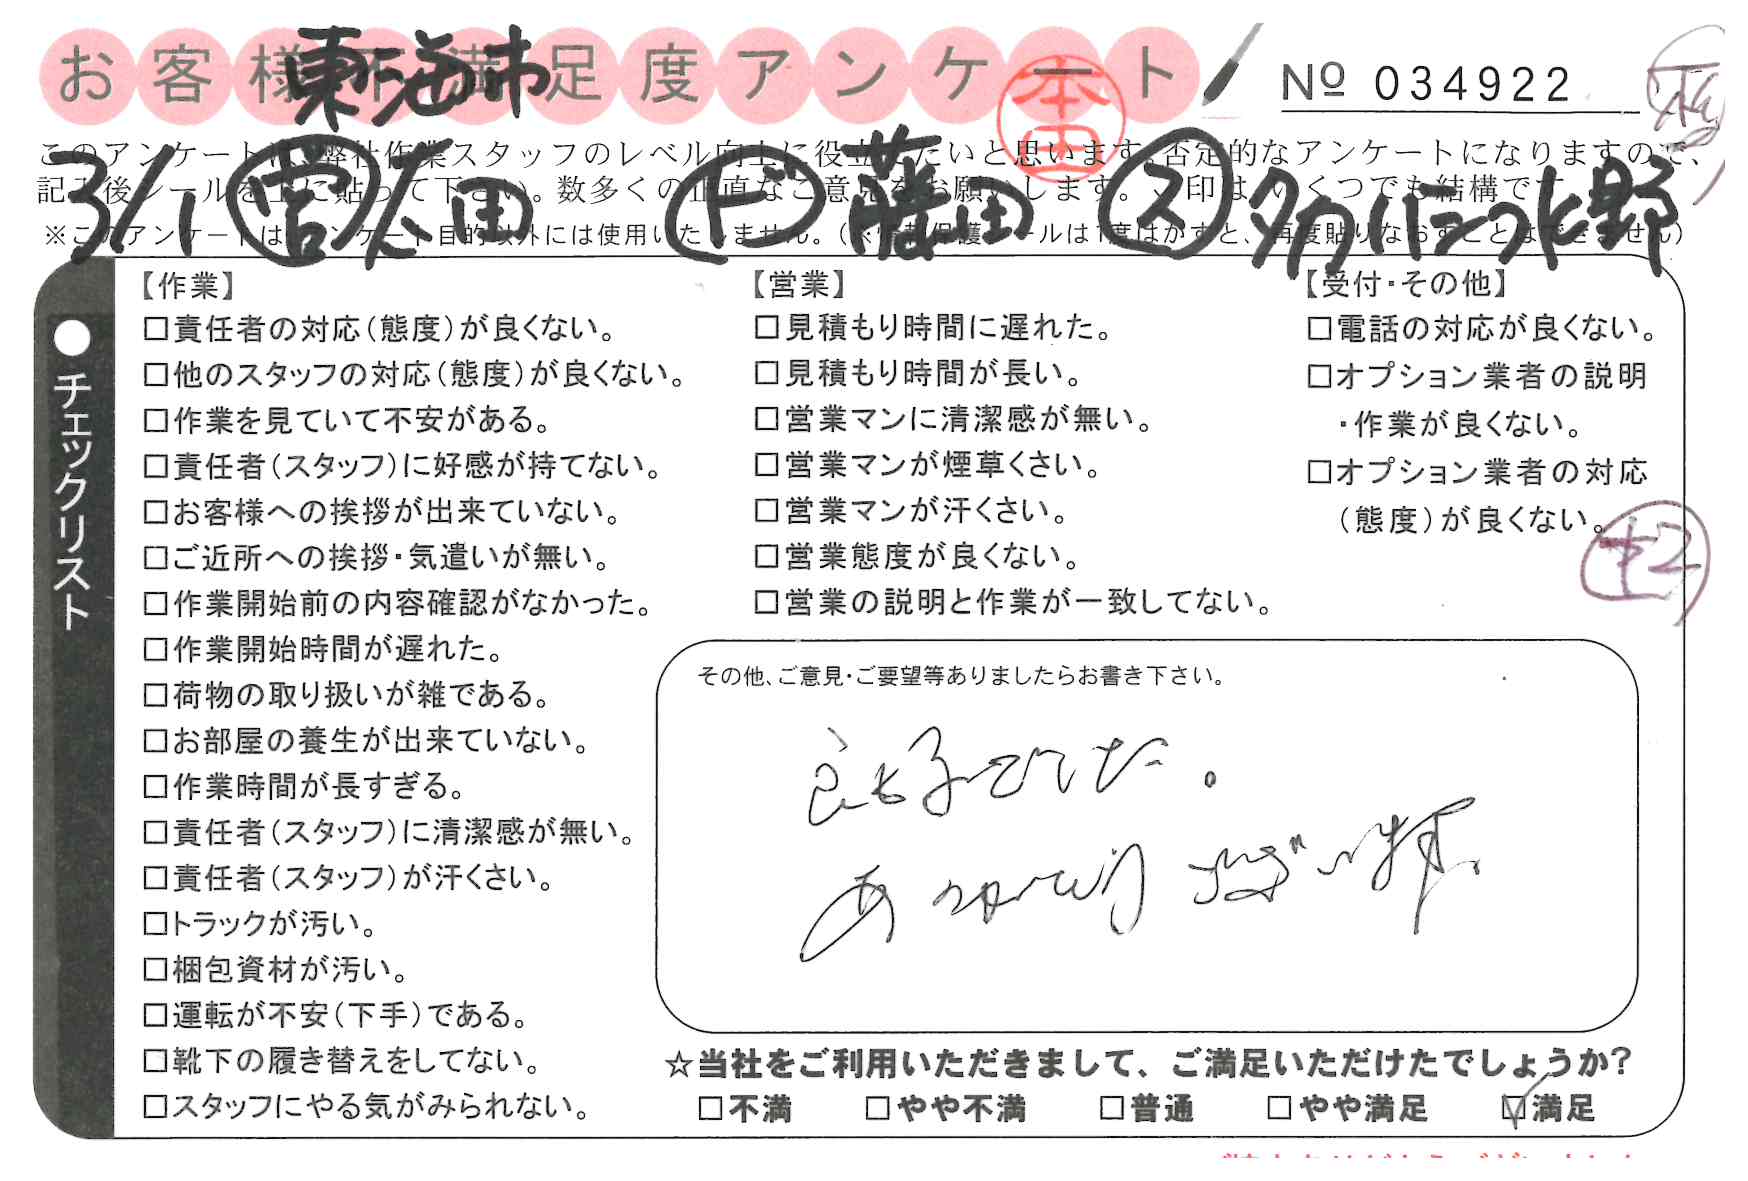 お客様不満足度アンケート
東海市
本田
Nº 034922
このアンケートは、弊社作業スタッフのレベル向上に役立てたいと思います。否定的なアンケートになりますので、
記入後シールを上に貼って下さい。数多くの正直なご意見をお願いします。✓印は、いくつでも結構です。
※このアンケートはアンケート目的以外には使用いたしません。(※情報保護シールは1度はがすと、再度貼りなおすことはできません)
3/1 営 太田 ド 藤田 ス タカハシ 水野
●チェックリスト
【作業】
□責任者の対応(態度)が良くない。
□他のスタッフの対応(態度)が良くない。
□作業を見ていて不安がある。
□責任者(スタッフ)に好感が持てない。
□お客様への挨拶が出来ていない。
□ご近所への挨拶・気遣いが無い。
□作業開始前の内容確認がなかった。
□作業開始時間が遅れた。
□荷物の取り扱いが雑である。
□お部屋の養生が出来ていない。
□作業時間が長すぎる。
□責任者(スタッフ)に清潔感が無い。
□責任者(スタッフ)が汗くさい。
□トラックが汚い。
□梱包資材が汚い。
□運転が不安(下手)である。
□靴下の履き替えをしてない。
□スタッフにやる気がみられない。
【営業】
□見積もり時間に遅れた。
□見積もり時間が長い。
□営業マンに清潔感が無い。
□営業マンが煙草くさい。
□営業マンが汗くさい。
□営業態度が良くない。
□営業の説明と作業が一致してない。
【受付・その他】
□電話の対応が良くない。
□オプション業者の説明
・作業が良くない。
□オプション業者の対応
(態度)が良くない。
+2
その他、ご意見・ご要望等ありましたらお書き下さい。
でした。
あり
☆当社をご利用いただきまして、ご満足いただけたでしょうか?
□不満 □やや不満 □普通 □やや満足 ☑満足